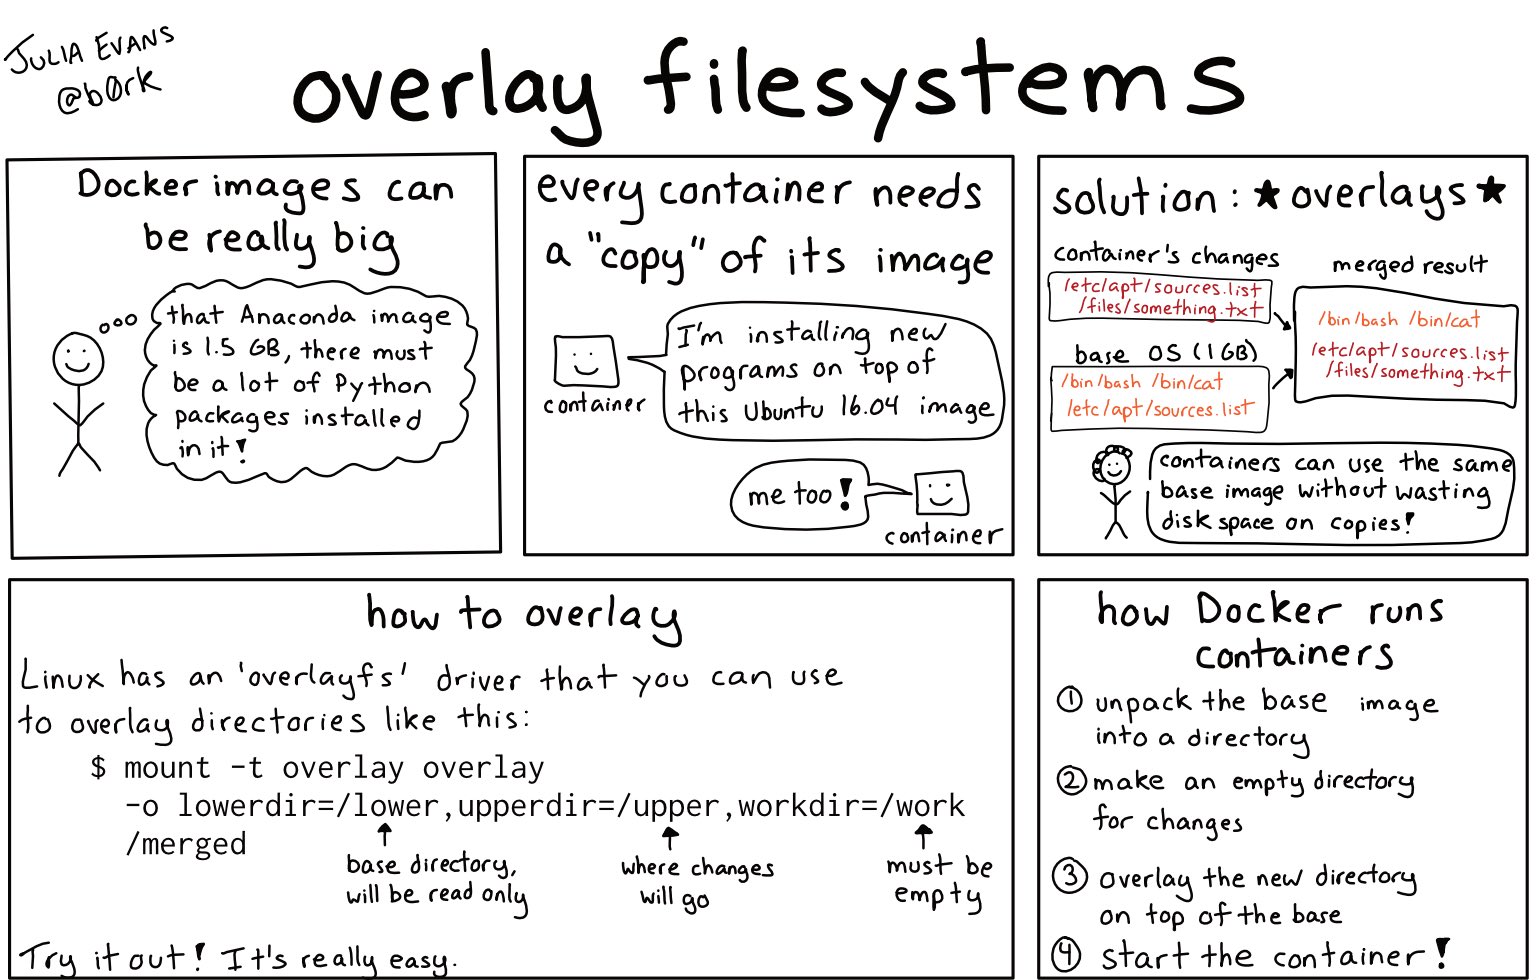 JULIA EVANS
@b0rk
overlay filesystems
Docker images can
be really big
that Anaconda image
is 1.5 GB, there must
be a lot of Python
packages installed
in it!
every container needs
a "copy" of its image
I'm installing new
programs on top of
this Ubuntu 16.04 image
container
me too!
container
solution: ★overlays★
container's changes
/etc/apt/sources.list
/files/something.txt
base OS (1 GB)
/bin/bash /bin/cat
/etc/apt/sources.list
merged result
/bin/bash /bin/cat
/etc/apt/sources.list
/files/something.txt
containers can use the same
base image without wasting
disk space on copies!
how to overlay
Linux has an 'overlayfs' driver that you can use
to overlay directories like this:
$ mount -t overlay overlay
-o lowerdir=/lower,upperdir=/upper,workdir=/work
/merged
base directory,
will be read only
where changes
will go
must be
empty
Try it out! It's really easy.
how Docker runs
containers
① unpack the base image
into a directory
② make an empty directory
for changes
③ overlay the new directory
on top of the base
④ start the container!